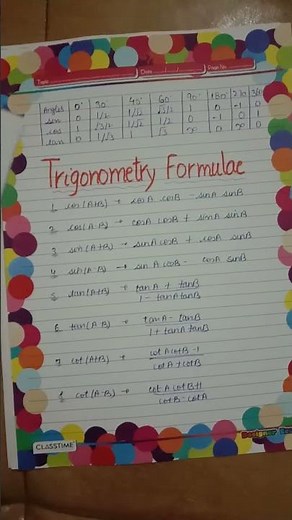 Date Page No
Angles 0° 30° 45° 60 90° 180° 270 360
sin 0 1/2 1/√2 √3/2 1 0 -1 0
cos 1 √3/2 1/√2 1/2 0 -1 0 1
tan 0 1/√3 1 √3 ∞ 0 ∞ 0
Trigonometry Formulae
1 cos(A+B) → cosA cosB - sinA sinB
2. cos(A-B) → cosA cosB + sinA sinB
3 sin(A+B) → sinA cosB + cosA sinB
4 sin(A-B) → sinA cosB - cosA sinB
5 tan(A+B) → tanA + tanB
1 - tanA tanB
6. tan(A-B) → tanA - tanB
1 + tanA tanB
7 cot(A+B) → cotA cotB - 1
cotA + cotB
8 cot(A-B) → cotA cotB+1
cotB - cotA
CLASSTIME
Designer